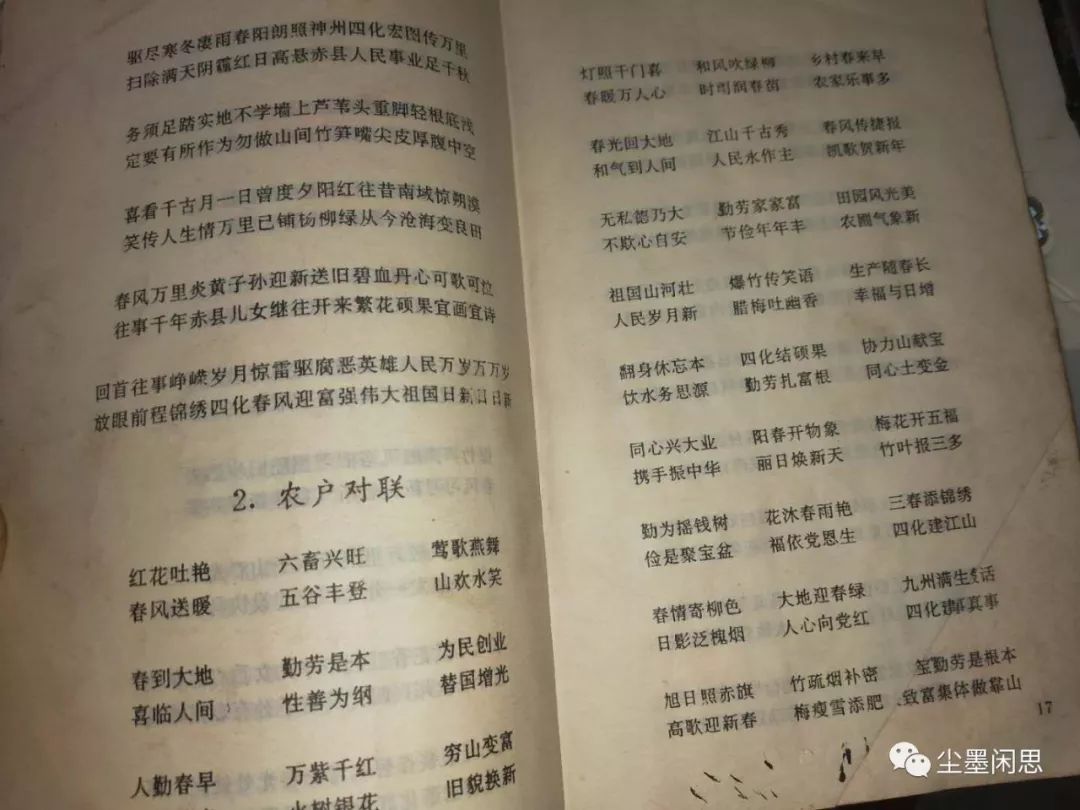 驱尽寒冬凄雨春阳朗照神州四化宏图传万里
扫除满天阴霾红日高悬赤县人民事业足千秋
务须足踏实地不学墙上芦苇头重脚轻根底浅
定要有所作为勿做山间竹笋嘴尖皮厚腹中空
喜看千古月一日曾度夕阳红往昔南域惊朔漠
笑传人生情万里已铺杨柳绿从今沧海变良田
春风万里炎黄子孙迎新送旧碧血丹心可歌可泣
往事千年赤县儿女继往开来繁花硕果宜画宜诗
回首往事峥嵘岁月惊雷驱腐恶英雄人民万岁万万岁
放眼前程锦绣四化春风迎富强伟大祖国日新日日新
2. 农户对联
红花吐艳 六畜兴旺 莺歌燕舞
春风送暖 五谷丰登 山欢水笑
春到大地 勤劳是本 为民创业
喜临人间 性善为纲 替国增光
人勤春早 万紫千红 穷山变富
火树银花 旧貌换新
灯照千门喜 和风吹绿柳 乡村春来早
春暖万人心 时雨润春苗 农家乐事多
春光回大地 江山千古秀 春风传捷报
和气到人间 人民水作主 凯歌贺新年
无私德乃大 勤劳家家富 田园风光美
不欺心自安 节俭年年丰 农圈气象新
祖国山河壮 爆竹传笑语 生产随春长
人民岁月新 腊梅吐幽香 幸福与日增
翻身休忘本 四化结硕果 协力山献宝
饮水务思源 勤劳扎富根 同心土变金
同心兴大业 阳春开物象 梅花开五福
携手振中华 丽日焕新天 竹叶报三多
勤为摇钱树 花沐春雨艳 三春添锦绣
俭是聚宝盆 福依党恩生 四化建江山
春情寄柳色 大地迎春绿 九州满生话
日影泛槐烟 人心向党红 四化建真事
旭日照赤旗 竹疏烟补密 勤劳是根本
高歌迎新春 梅瘦雪添肥 致富集体做靠山
17
尘墨闲思